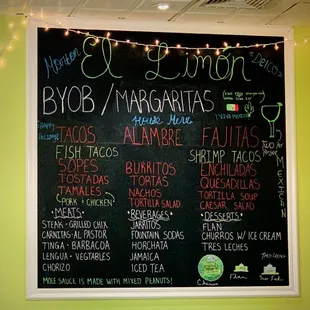 El Limón
BYOB / MARGARITAS
House Menu
TACOS ALAMBRE FAJITAS
FISH TACOS SHRIMP TACOS
SOPES BURRITOS ENCHILADAS
TOSTADAS TORTAS QUESADILLAS
TAMALES NACHOS TORTILLA SOUP
PORK & CHICKEN TORTILLA SALAD CAESAR SALAD
*MEATS* *BEVERAGES* *DESSERTS*
STEAK - GRILLED CHIX JARRITOS FLAN
CARNITAS - AL PASTOR FOUNTAIN SODAS CHURROS W/ ICE CREAM
TINGA - BARBACOA HORCHATA TRES LECHES
LENGUA - VEGETABLES JAMAICA
CHORIZO ICED TEA
MOLE SAUCE IS MADE WITH MIXED PEANUTS!
Flan